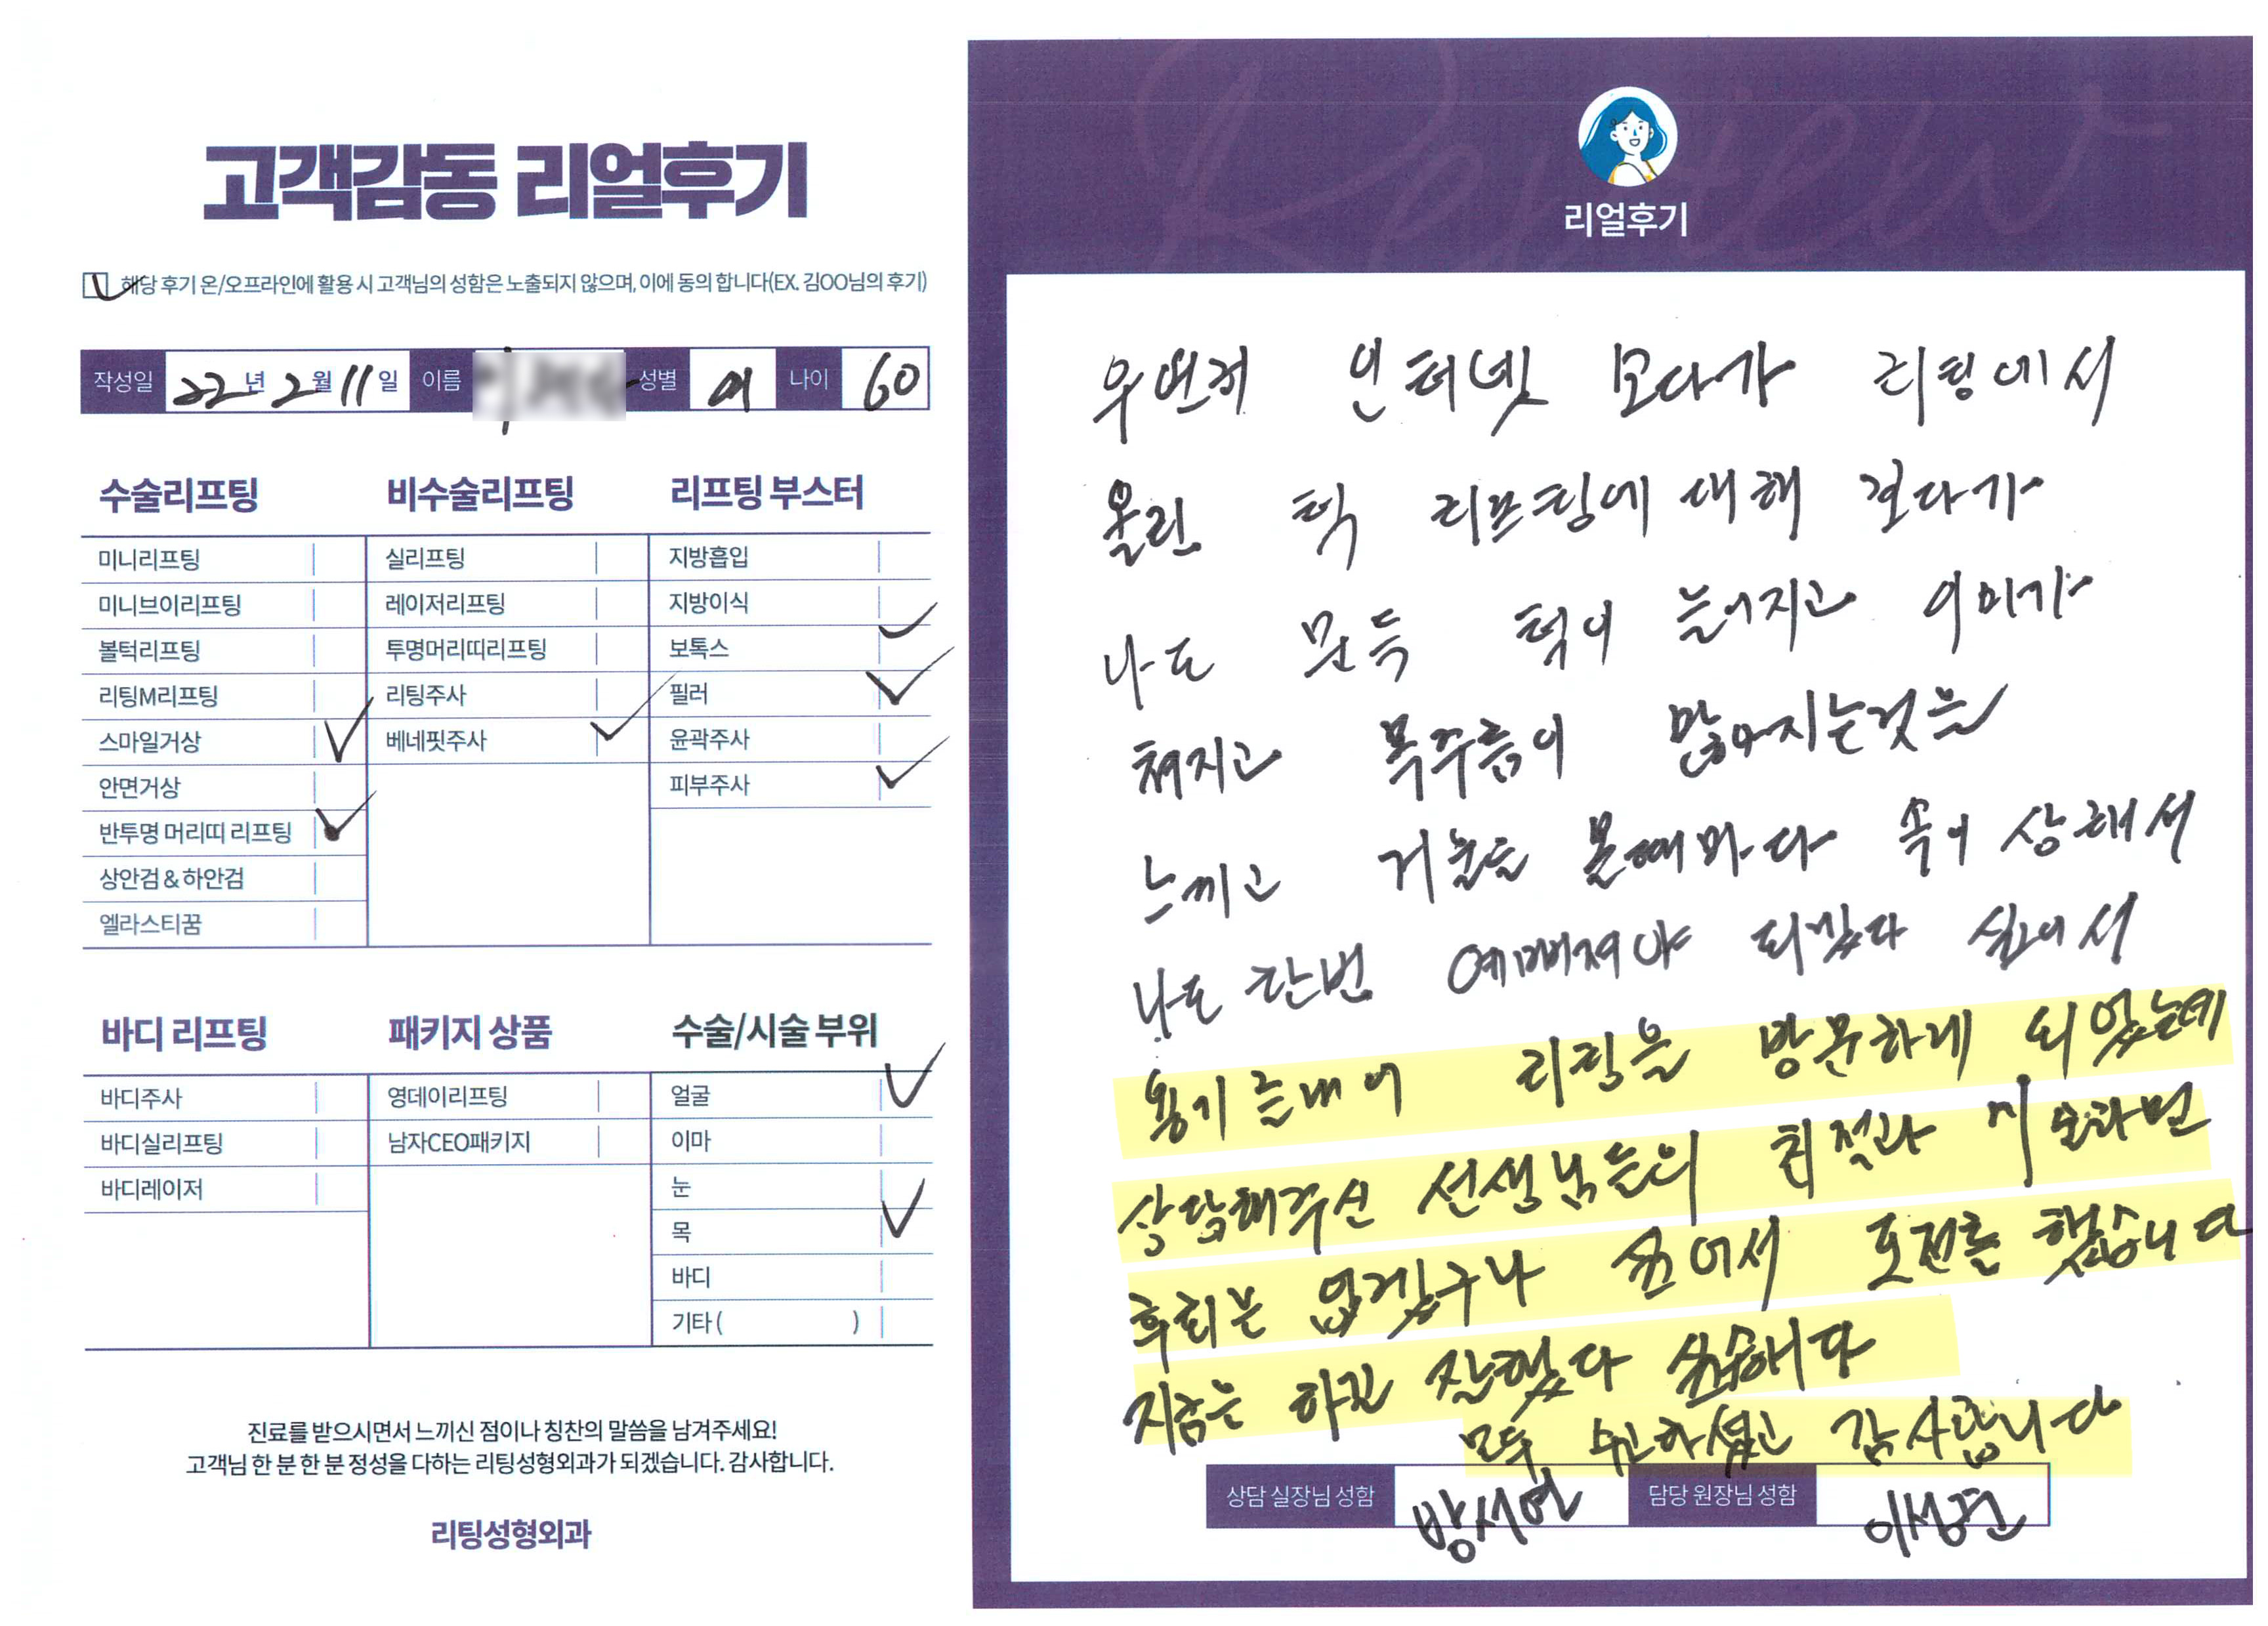 고객감동 리얼후기
해당 후기 온/오프라인에 활용 시 고객님의 성함은 노출되지 않으며, 이에 동의 합니다(EX. 김OO님의 후기)
작성일 22년 2월 11일 이름 성별 여 나이 60
수술리프팅
미니리프팅
미니브이리프팅
볼턱리프팅
리팅M리프팅
스마일거상
안면거상
반투명 머리띠 리프팅
상안검 & 하안검
엘라스티꿈
비수술리프팅
실리프팅
레이저리프팅
투명머리띠리프팅
리팅주사
베네핏주사
리프팅 부스터
지방흡입
지방이식
보톡스
필러
윤곽주사
피부주사
바디 리프팅
바디주사
바디실리프팅
바디레이저
패키지 상품
영데이리프팅
남자CEO패키지
수술/시술 부위
얼굴
이마
눈
목
바디
기타 ( )
진료를 받으시면서 느끼신 점이나 칭찬의 말씀을 남겨주세요!
고객님 한 분 한 분 정성을 다하는 리팅성형외과가 되겠습니다. 감사합니다.
리팅성형외과
Review
리얼후기
우연히 인터넷 보다가 리팅에서
올린 턱 리프팅에 대해 보다가
나도 문득 턱이 늘어지고 이미가
쳐지고 목주름이 많아지는것을
느끼고 거울을 볼때마다 속이 상해서
나도 한번 예뻐져야 되겠다 싶어서
용기를내어 리팅을 방문하게 되었는데
상담해주신 선생님들의 친절과 기술라면
후회는 없겠구나 싶어서 도전을 했습니다
지금은 하길 잘했다 싶습니다
모두 수고하셨고 감사합니다
상담 실장님 성함 방서연 담당 원장님 성함